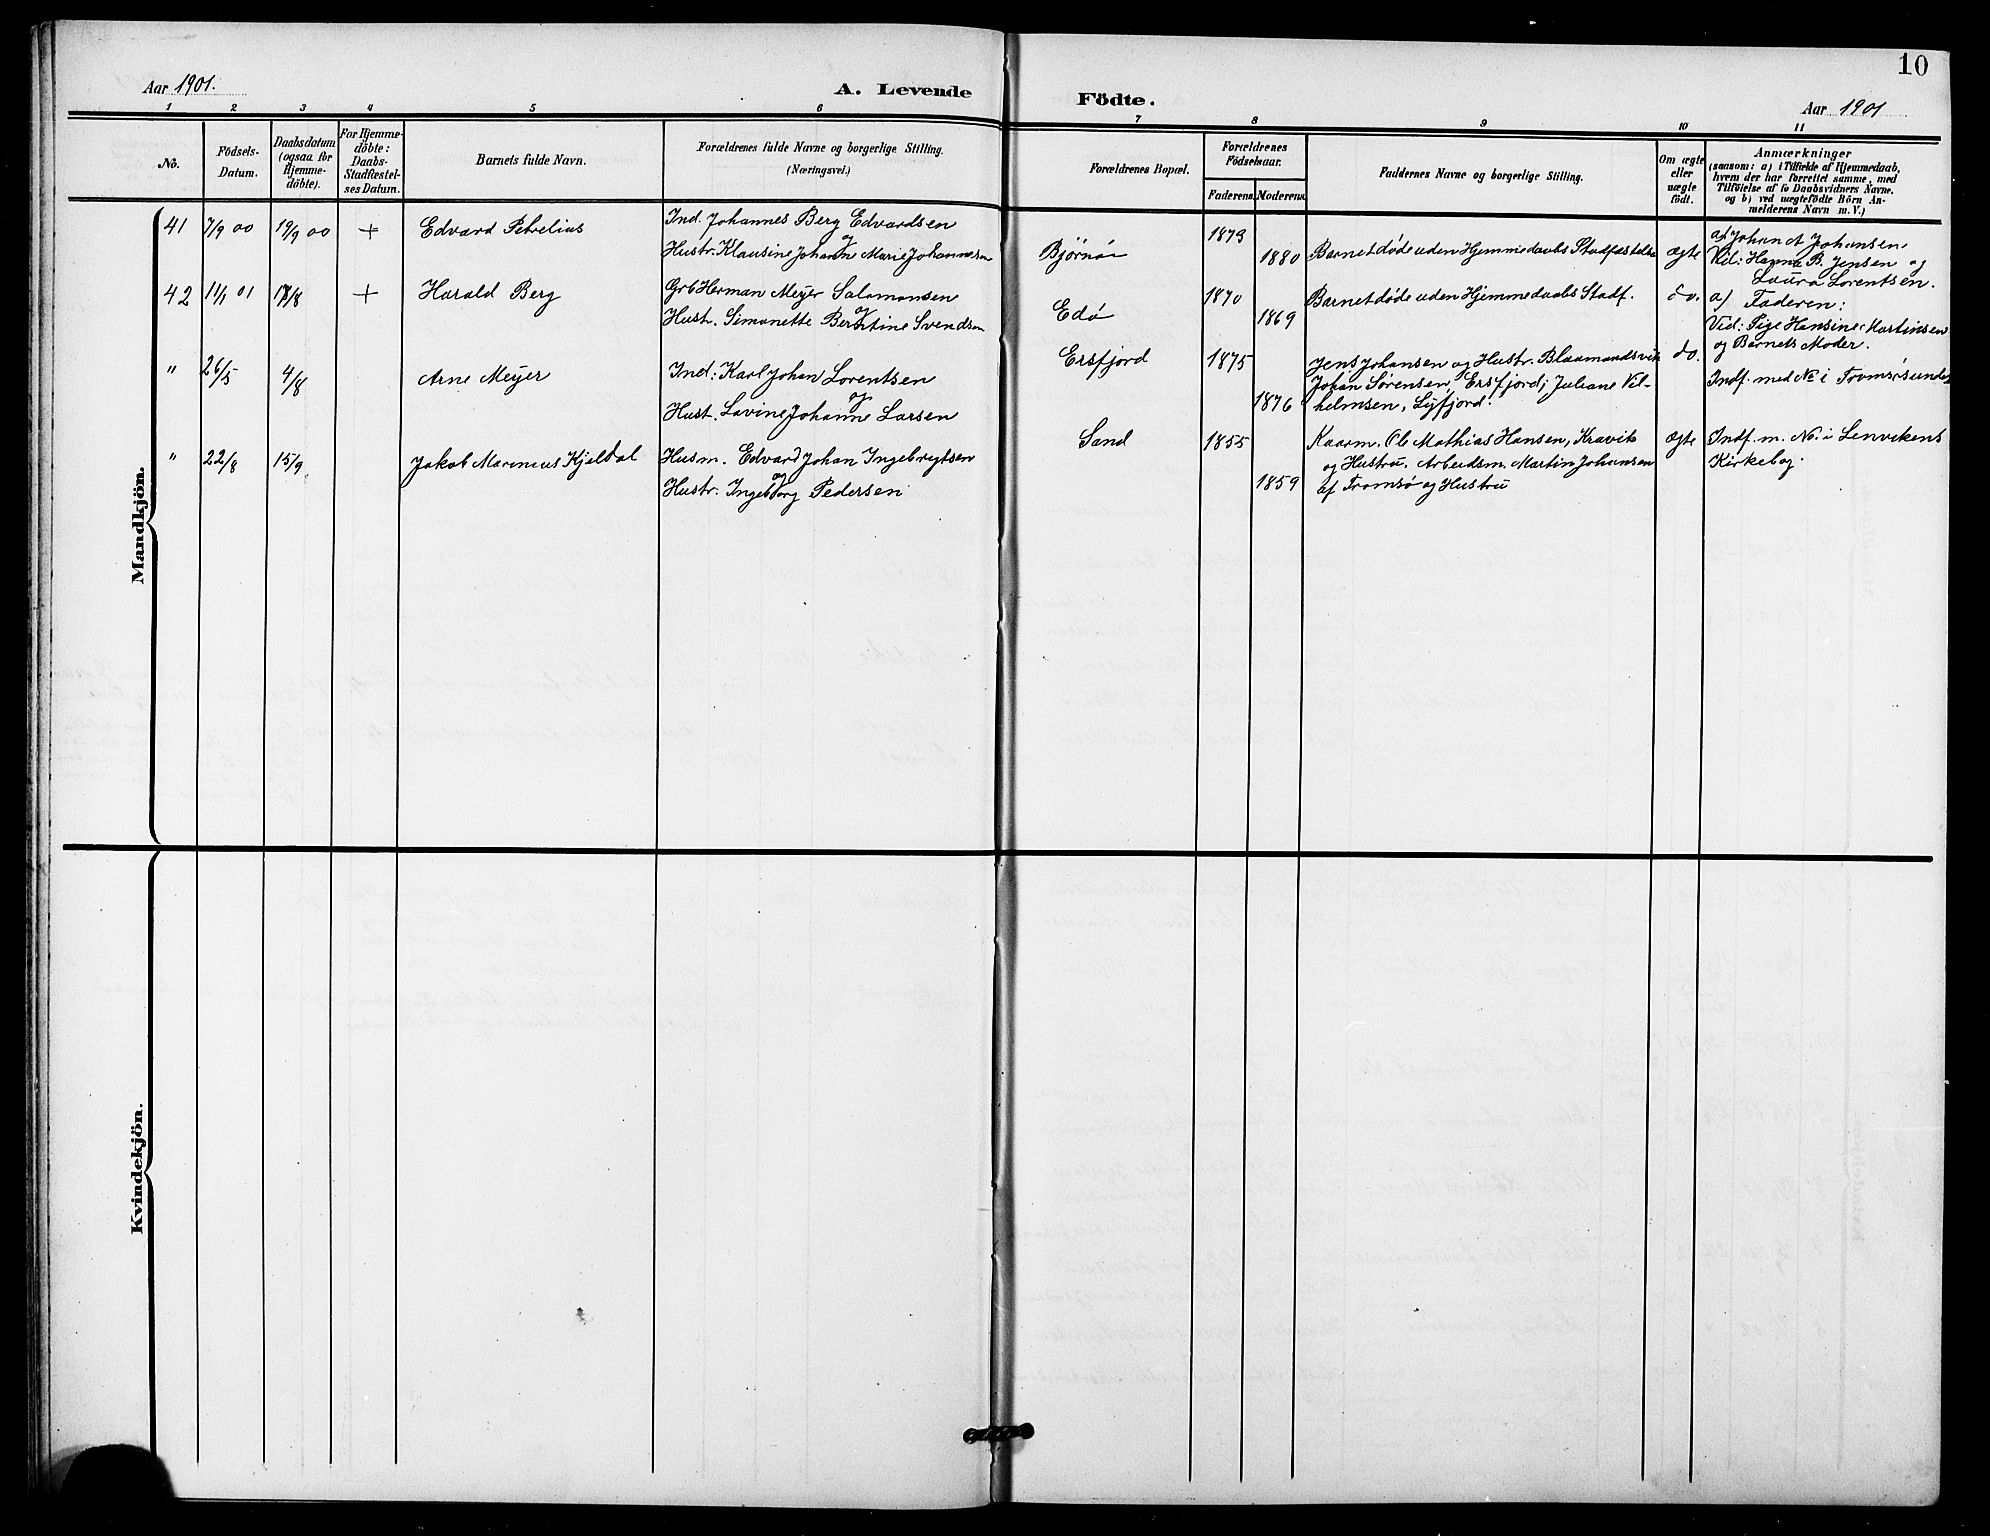 10
Aar 1901.
A. Levende Födte.
Aar 1901
1 2 3 4 5 6 7 8 9 10 11
No.
Födsels-
Datum.
Daabsdatum
(ogsaa för
Hjemme-
döbte).
For Hjemme-
döbte:
Daabs-
Stadfæstel-
ses Datum.
Barnets fulde Navn.
Forældrenes fulde Navne og borgerlige Stilling.
(Næringsvei.)
Forældrenes Bopæl.
Forældrenes
Födselsaar.
Faderens. Moderens.
Faddernes Navne og borgerlige Stilling.
Om ægte
eller
uægte
födt.
Anmærkninger
(saasom: a) i Tilfælde af Hjemmedaab,
hvem der har forrettet samme, med
Tilföielse af to Daabsvidners Navne.
og b) ved uægtefödte Börn An-
melderens Navn m. V.)
Mandkjön.
41 7/9 00 19/9 00 + Edvard Petrelius
Ind. Johannes Berg Edvardsen
og
Hustr. Klausine Johanne Marie Johannesen
Bjørnøi
1879
1880
Barnet døde uden Hjemmedaabs Stadfæstelse
ægte
a) Johan A Johansen.
Vid: Hanna B. Jensen og
Laura Lorentsen.
42 11/1 01 17/8 + Harald Berg
Grb Herman Meyer Salamonsen
og
Hust. Simonette Berntine Svendsen
Edø
1870
1869
Barnet døde uden Hjemmedaabs Stadf.
do.
a) Faderen:
Vid: Pige Hansine Martinsen
og Barnets Moder.
" 26/5 4/8 Arne Meyer
Ind: Karl Johan Lorentsen
og
Hust. Lavine Johanne Larsen
Ersfjord
1875
1876
Jens Johansen og Hustr. Blaamandsvik
Johan Sørensen, Ersfjord; Juliane Vil-
helmsen, Lyfjord.
do.
Indf. med No i Tromsøsundet
" 22/8 15/9 Jakob Marenius Kjeldal
Husm. Edvard Johan Ingebregtsen
og
Hustr. Ingeborg Pedersen
Sand
1855
1859
Kaarm. Ole Mathias Hansen, Kravik
og Hustru. Arbeidsm. Martin Johansen
af Tromsø og Hustru
ægte
Indf. m. No. i Lenvikens
Kirkebog.
Kvindekjön.